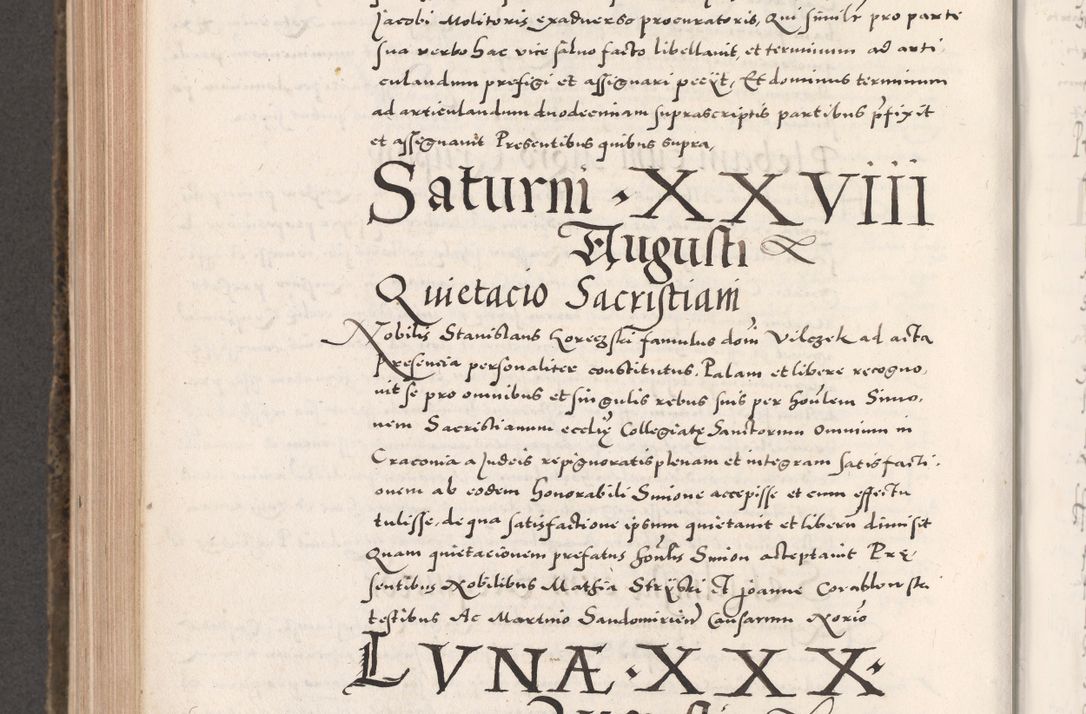 Jacobi Molitoris exadverso procuratoris, Qui simile pro parte
sua verbo hac vice salvo facto libellavit, et terminum ad arti
culandum prefigi et assignari peciit, Et dominus terminum
ad articulandum duodecimam suprascriptis partibus pfixit
et assignavit Presentibus quibus supra,
Saturni · XXVIII
Augusti
Quietacio Sacristiani
Nobilis Stanislaus Koreczski famulus dom Vilczek ad acta
Presencia personaliter constitutus, Palam et libere recogno,
vit se pro omnibus et singulis rebus suis per houlem Simo,
nem Sacristianum ecclię Collegiatę Sanctorum Omnium in
Cracovia a Judeis repignoratis plenam et integram satisfacti,
onem ab eodem Honorabili Simone accepisse et cum effectu
tulisse, de qua satisfactione ipsum quietavit et liberu dimisit
Quam quietacionem prefatus houlis Simon acceptavit Prę
sentibus Nobilibus Mathia Stryski Et Joanne Corablewski
testibus Ac Martino Sandomirien Causarum Notrio
LVNÆ · XXX ·